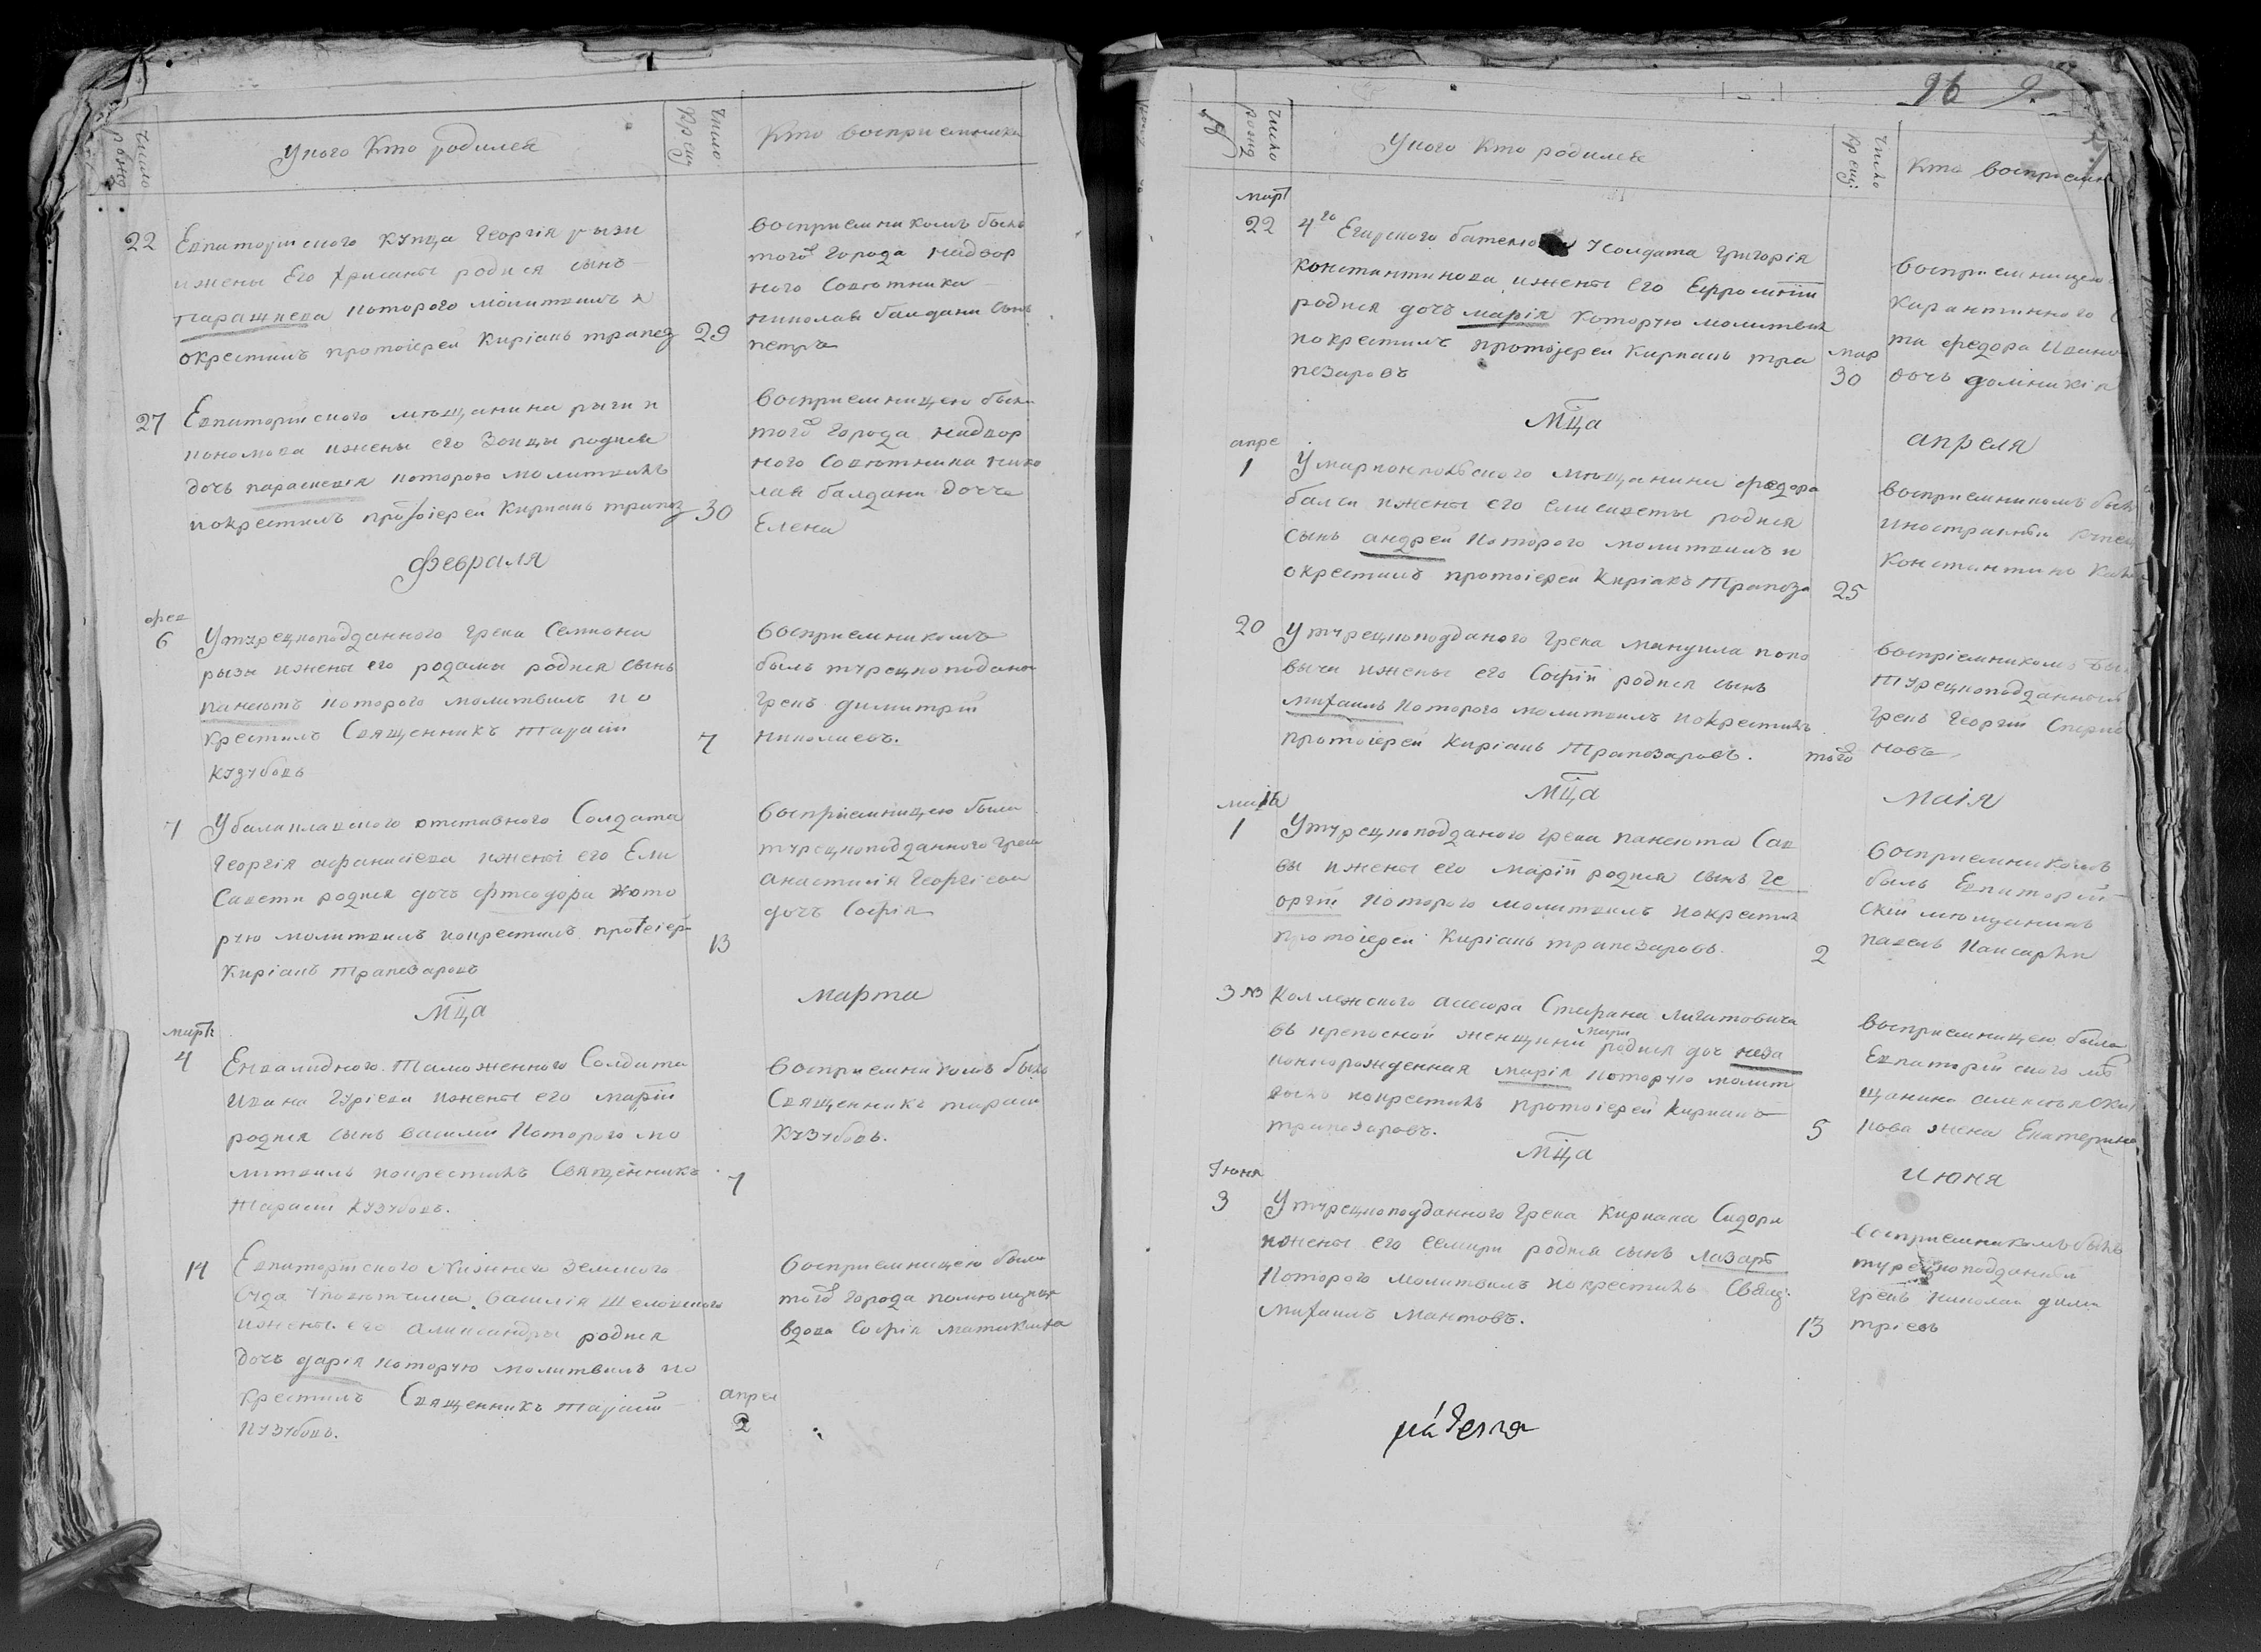 Число рожд
У кого Кто родился
Число Крещ
Кто восприемники
22
Евпаторійского Купца Георгія рызи
и жены Его Хрисанты родился сынъ
парашкева которого молитвилъ и
окрестилъ протоіерей Киріакъ трапез
29
восприемникомъ былъ
того города надвор
ного Советника
николая балдани сынъ
петръ
27
Евпаторійского мещанина рыги и
кономова и жены его Зоицы родилса
дочъ параскевія которою молитвилъ
и окрестилъ протоіерей Киріакъ трапез
30
восприемницею была
того города надвор
ного Советника нико
лая балдани дочъ
Елена
февраля
фев
6
У турецкоподданного грека Семиона
рызи и жены его родамы родился сынъ
панаютъ которого молитвилъ и о
крестилъ Священникъ тарасій
кузубовъ
7
восприемникомъ
былъ турецкоподано
грекъ димитрій
николаевъ.
7
У балаклавского отставного Солдата
Георгія афанасіева и жены его Ели
Савети родился дочъ фтеодора кото
рую молитвилъ и окрестилъ протоіер
Киріакъ трапезаровъ
13
восприемницею была
турецкоподданного грека
анастасія Георгіева
дочъ Софія
Мца
марта
мартъ
4
Енвалидного таможенного Солдата
Ивана Гуріева и жены его маріи
родился сынъ василій которого мо
литвилъ и окрестилъ Священникъ
тарасій кузубовъ.
7
восприемникомъ былъ
Священникъ тарасій
кузубовъ.
14
Евпаторійского Нижнего земского
Суда василія
и жены его александры родился
дочъ дарія которую молитвилъ и о
крестилъ Священникъ тарасій
кузубовъ.
апрел
2
восприемницею была
того города помющика
вдова Софія
96 9.
Число рожд
У кого Кто родился
Число Крещ:
Кто восприемн
март
22
4го Егерского баталіона Солдата Григорія
константинова и жены его Ефросиніи
родился дочъ марія которую молитвил
и окрестилъ протоіерей Киріакъ тра
пезаровъ
мар
30
восприемницею
Карантинного
та федора Ивано
дочь домникія
Мца
апреля
апре
1
У маріюпольского мещанина федора
балси и жены его елисаветы родился
сынъ андрей которого молитвилъ и
окрестилъ протоіерей Киріакъ Трапеза
25
восприемникомъ былъ
иностранный купец
Константинъ
20
У турецкоподданого грека мануила попо
вычи и жены его Софіи родился сынъ
михаилъ которого молитвилъ и окрестилъ
протоіерей Киріакъ Трапезаровъ.
того
восприемникомъ был
турецкоподданный
грекъ Георгій
новъ
Мца
маія
маія
1
У турецкоподданого грека панаюта Сав
вы и жены его маріи родился сынъ ге
оргій которого молитвилъ и окрестил
протоіерей Киріакъ трапезаровъ.
2
восприемникомъ
былъ Евпаторій
скій мющанинъ
павелъ
3
Коллежского асесора Стефана
въ крепосной женщини мари родился доч неза
коннорожденная марія которую молит
вилъ и окрестилъ протоіерей киріакъ
трапезаровъ.
5
восприемницею была
Евпаторійского мю
щанина
кова жена Екатерина
Мца
июня
Іюня
3
У турецкоподданного грека Киріака Сидори
и жены его родился сынъ лазарь
которого молитвилъ и окрестилъ Свящ:
михаилъ мантовъ.
13
восприемникомъ былъ
турецкоподданный
грекъ николай дими
тріевъ